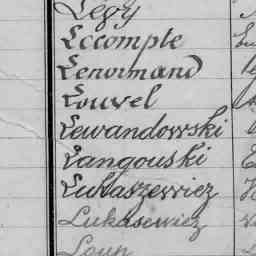 Légy
Lecomple
Lenormand
Louvel
Lewandowski
Langouski
Lukaszewiez
Lukasewiez
Loun